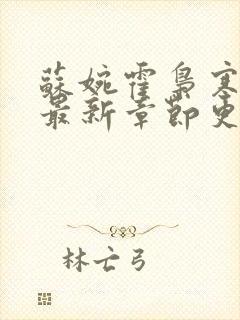 蘇婉霍梟寒
最新章節更
林亡弓